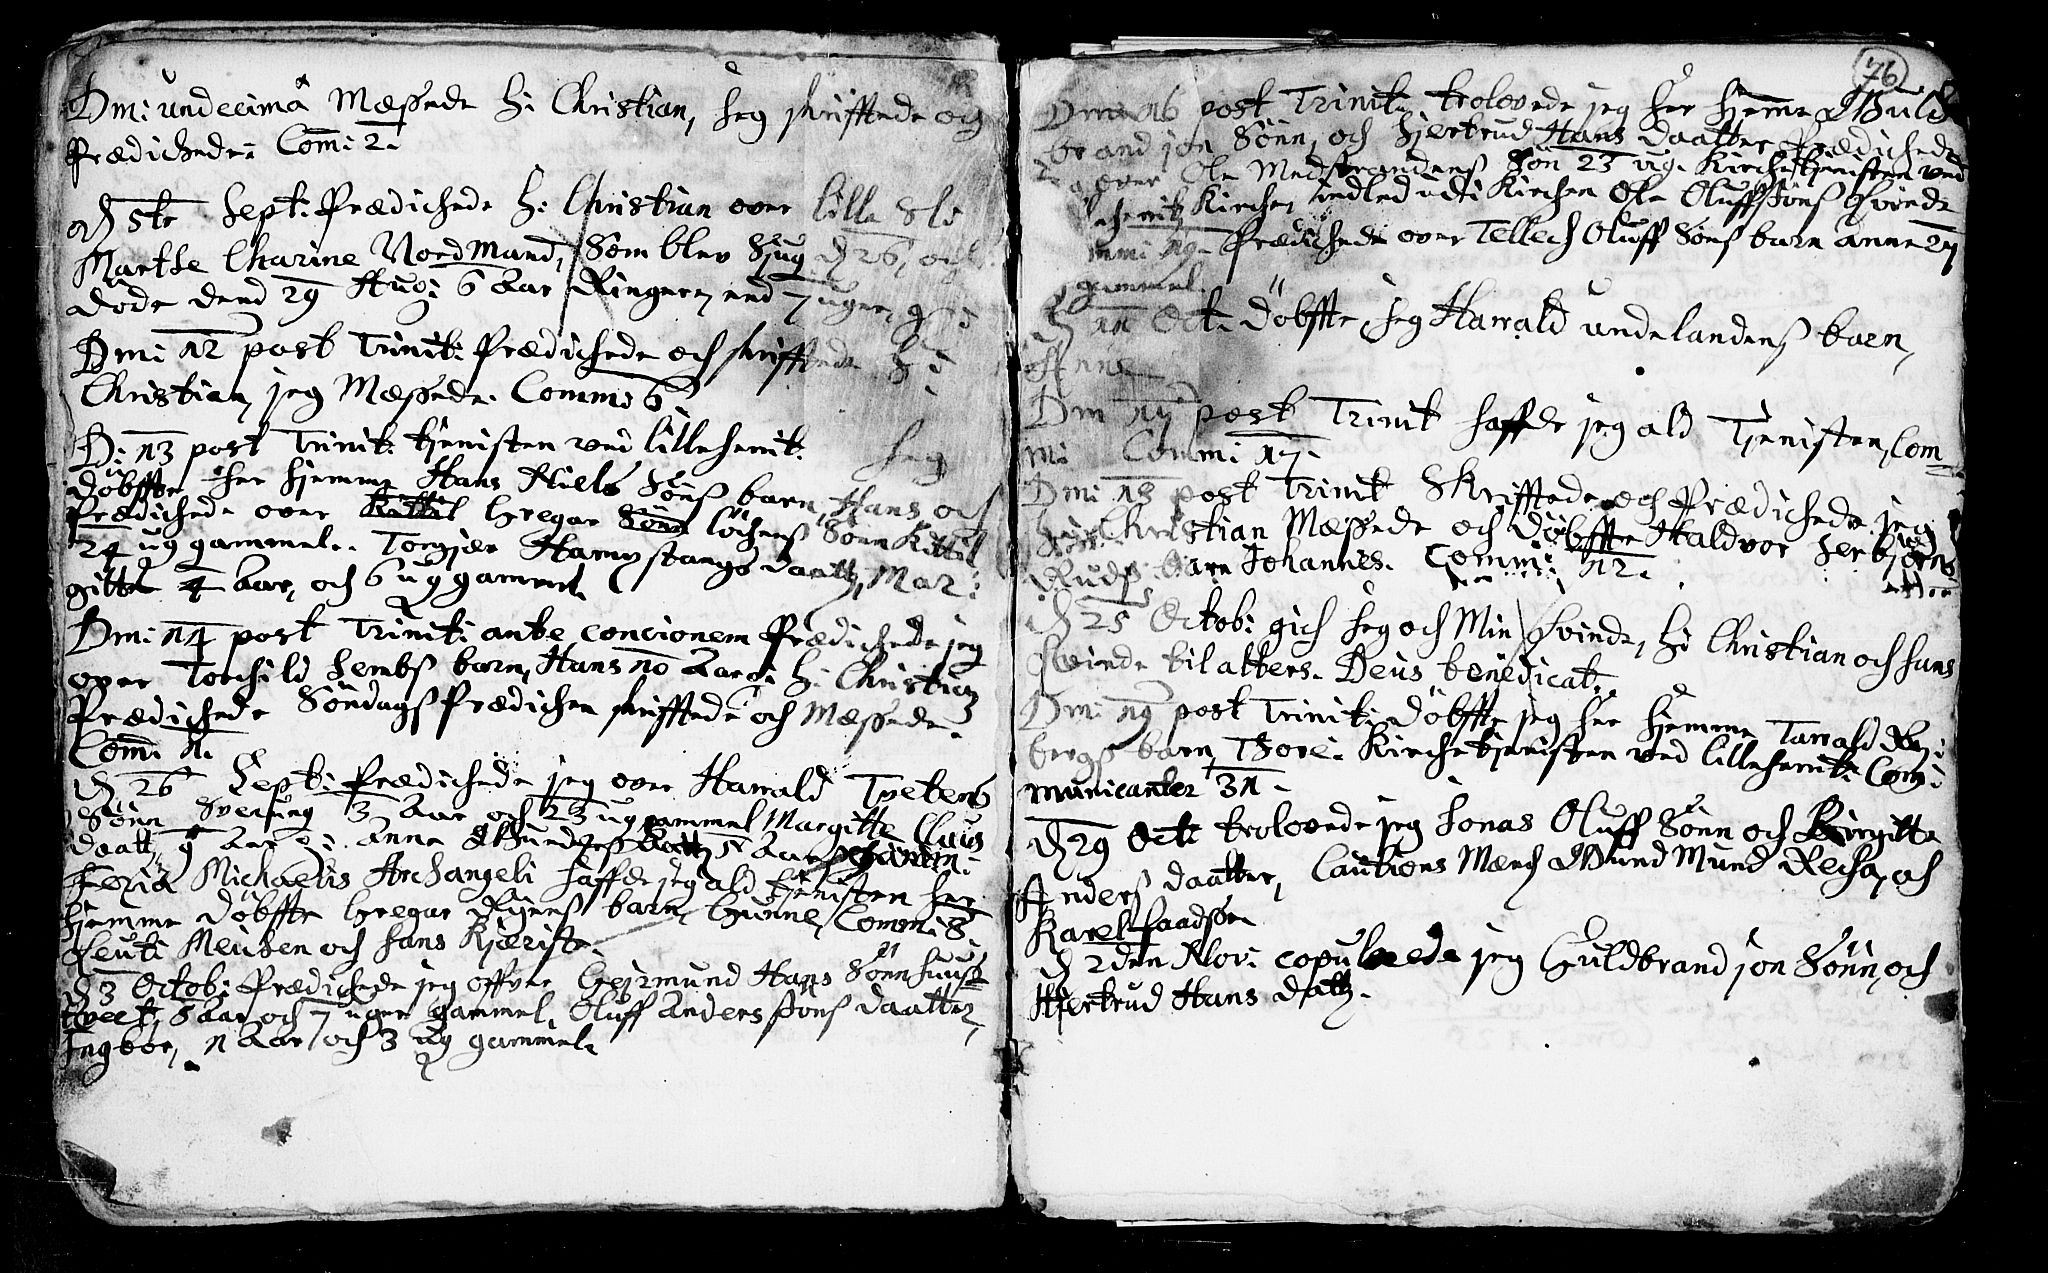 Dmi: undecimâ Mæssede H: Christian, Jeg skrifftede och
Prædichede: Com: 2.
D 5te Sept: Prædichede H: Christian over lille Sl:
Marthe Charine Nordmand, Som blev Sjug d 26, och
døde dend 29 Aug: 6 Aar Ringere end 7 uger,
Dmi 12 post Trinit: Prædichede och skrifftede H:
Christian, jeg Mæssede. Commi 6
D: 13 post Trinit: tjenisten ved lilleherrit: Jeg
døbffte her hjemme Hans Niels Sönß barn, Hans och
Prædichede over Kittil Gregar Sönn löchens Sönn Kittil
24 ug gammel. Torgjer Hampstangs daatter, Mar:
gitte 4 Aar, och 6 ug gammel.
Dmi 14 post Trinit: ante concionem Prædichede jeg
over Torchild Sembß barn, Hans 10 Aar: H: Christian
Prædichede Söndagß Prædichen skrifftede och Mæssede.
Com: 11.
D 26 Sept: Prædichede jeg over Harrald Tvetens
Sönn Sverung 3 Aar och 23 ug gammel Margitte Claus
daatt. 9 Aar: Anne Gunders daatt 5 Aar
Feriâ Michaelis Archangeli haffde jeg ald tjenisten her
hjemme döbffte Gregar barn, Gunne, Comm: 8
Leut: Meitzen och hans Kjeriste.
D 3 Octob: Prædichede jeg offver Gejrmund Hans Sönn
tveet, 5 Aar och 7 uger gammel, Oluff Anders Sönß daatter,
Ingbor, 11 Aar och 3 ug gammel.
76
Dmi 16 post Trinit: trolovede jeg her hjeme Guld
brand jon Sönn, och Hjertrud Hans daatter Prædichede
over Ole Medstrandenß Sön 23 ug. Kirchetjenisten ved
Kirche, indled udi Kirchen Ole Oluffsönß Qvinde
Prædichede over Tellech Oluff Sönß barn anne 27
gammel.
D 11 Oct. Döbffte jeg Harrald undelandenß barn,
Dmi 17 post Trinit haffde jeg ald Tjenisten, Com
mi Commi 17.
Dmi 18 post Trinit Skrifftede och Prædichede jeg
Christian Mæssede och Döbffte Haldvor
Rudß barn Johannes. Commi 12.
D 25 Octob: gich jeg och Min Qvinde, H: Christian och hans
Qvinde til alters. Deus benedicat.
Dmi 19 post Trinit: döbffte jeg her hjemme Tarrald
bergs barn, Thore. Kirchetjenisten ved lilleherrit: Com:
municanter 31.
D 29 Oct: trolovede jeg Jonas Oluff Sönn och Birgitte
Anderß daatter, Cautions Mænd Gundmund och
Karel
D 2den Nov: copulerede jeg Guldbrand jon Sönn, och
Hjertrud Hans datt.